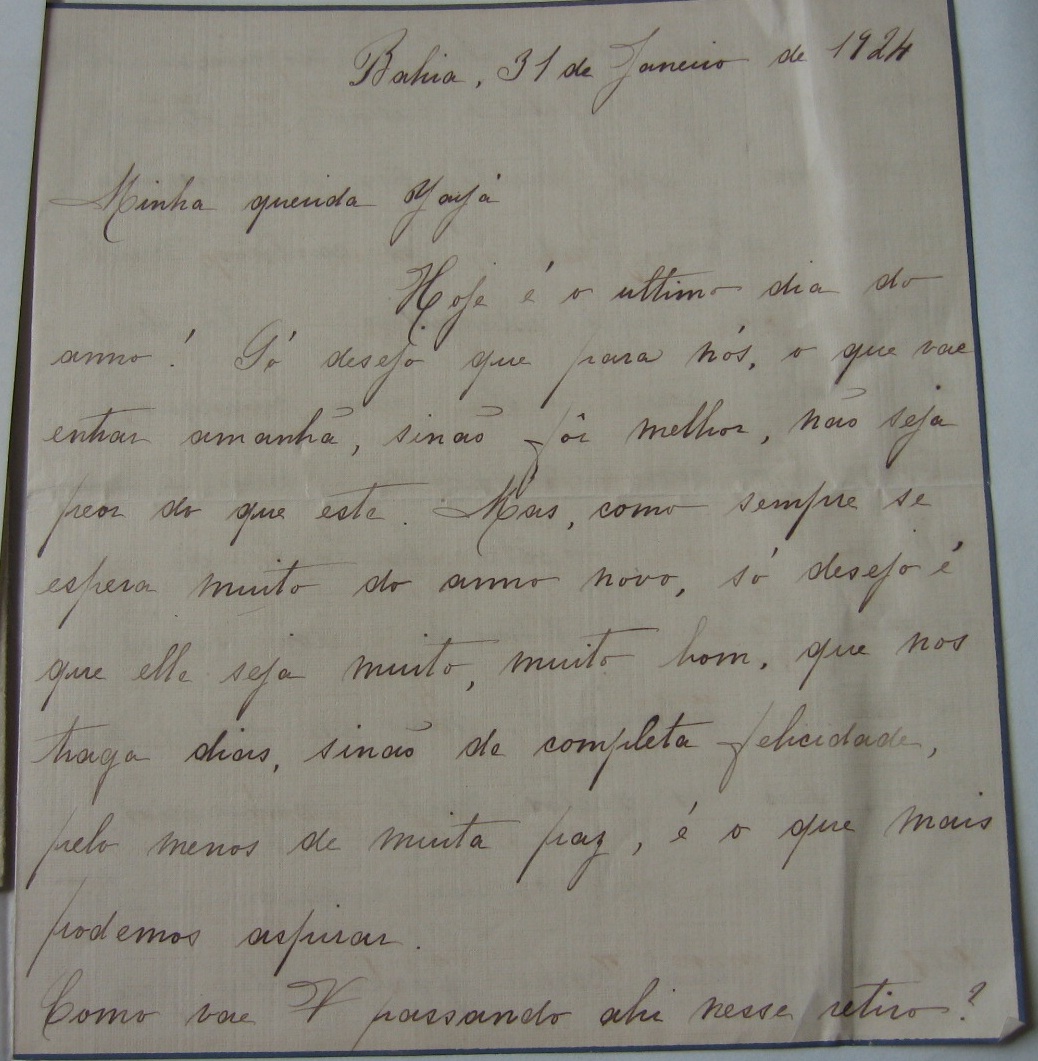 Bahia, 31 de Janeiro de 1924
Minha querida Yayá
Hoje é o ultimo dia do
anno! Só desejo que para nós, o que vae
entrar amanhã, sinão fôr melhor, não seja
peor do que este. Mas, como sempre se
espera muito do anno novo, só desejo é
que elle seja muito, muito bom, que nos
traga dias, sinão de completa felicidade,
pelo menos de muita paz, é o que mais
podemos aspirar.
Como vae V passando ahi nesse retiro?